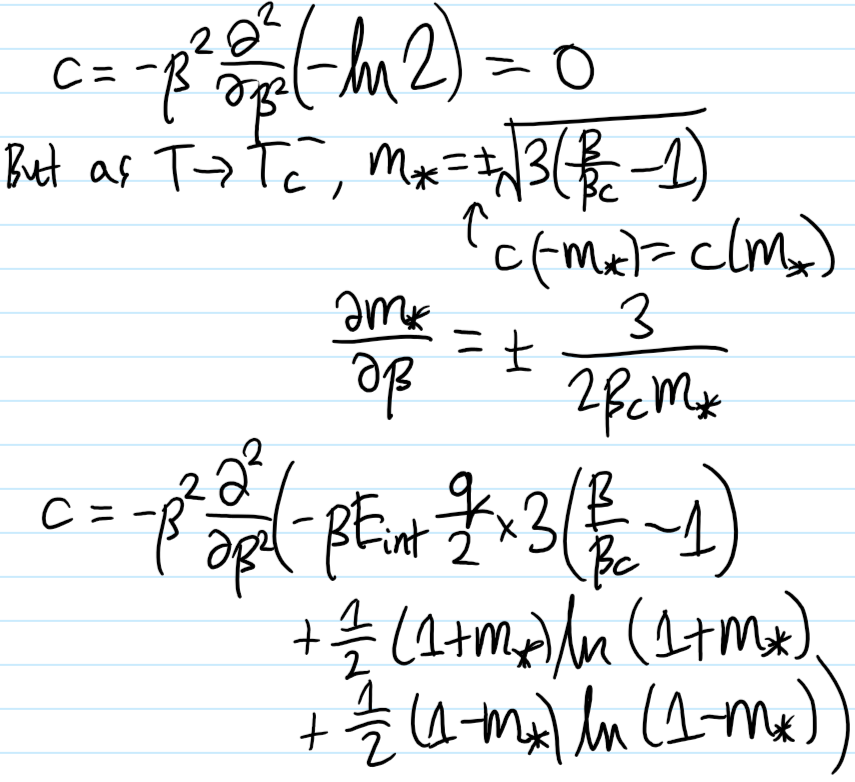 c = -β² ∂²/∂β² (-ln 2) = 0
But as T → T_c⁻, m_* = ±√(3(β/β_c - 1))
↑ c(-m_*) = c(m_*)
∂m_*/∂β = ± 3/(2β_c m_*)
c = -β² ∂²/∂β² (-βE_int q/2 × 3(β/β_c - 1)
+ 1/2 (1+m_*) ln (1+m_*)
+ 1/2 (1-m_*) ln (1-m_*))